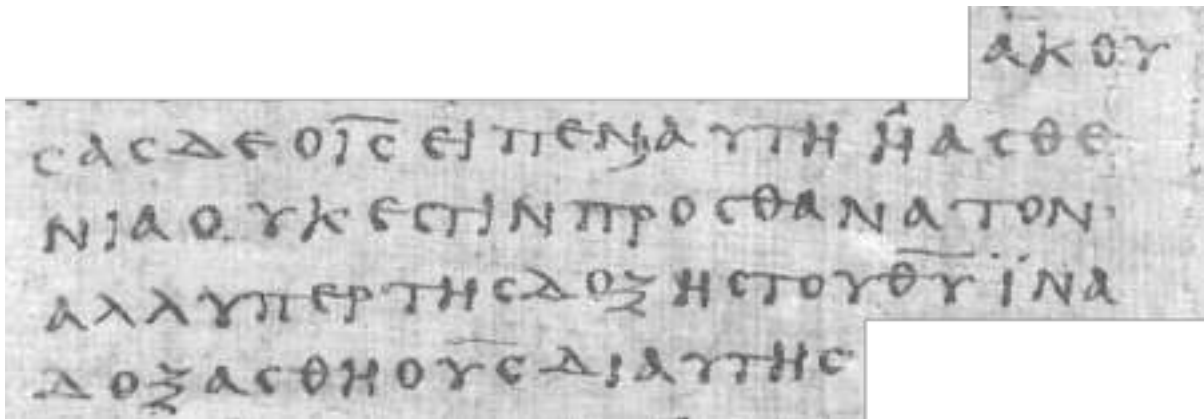 ακου
σας δε ο ι̅ς̅ ειπεν· αυτη ἡ ασθε
νια ουκ εστιν προς θανατον·
αλλ υπερ της δοξης του θ̅υ̅ ϊνα
δοξασθη ο υ̅ς̅ δι αυτης